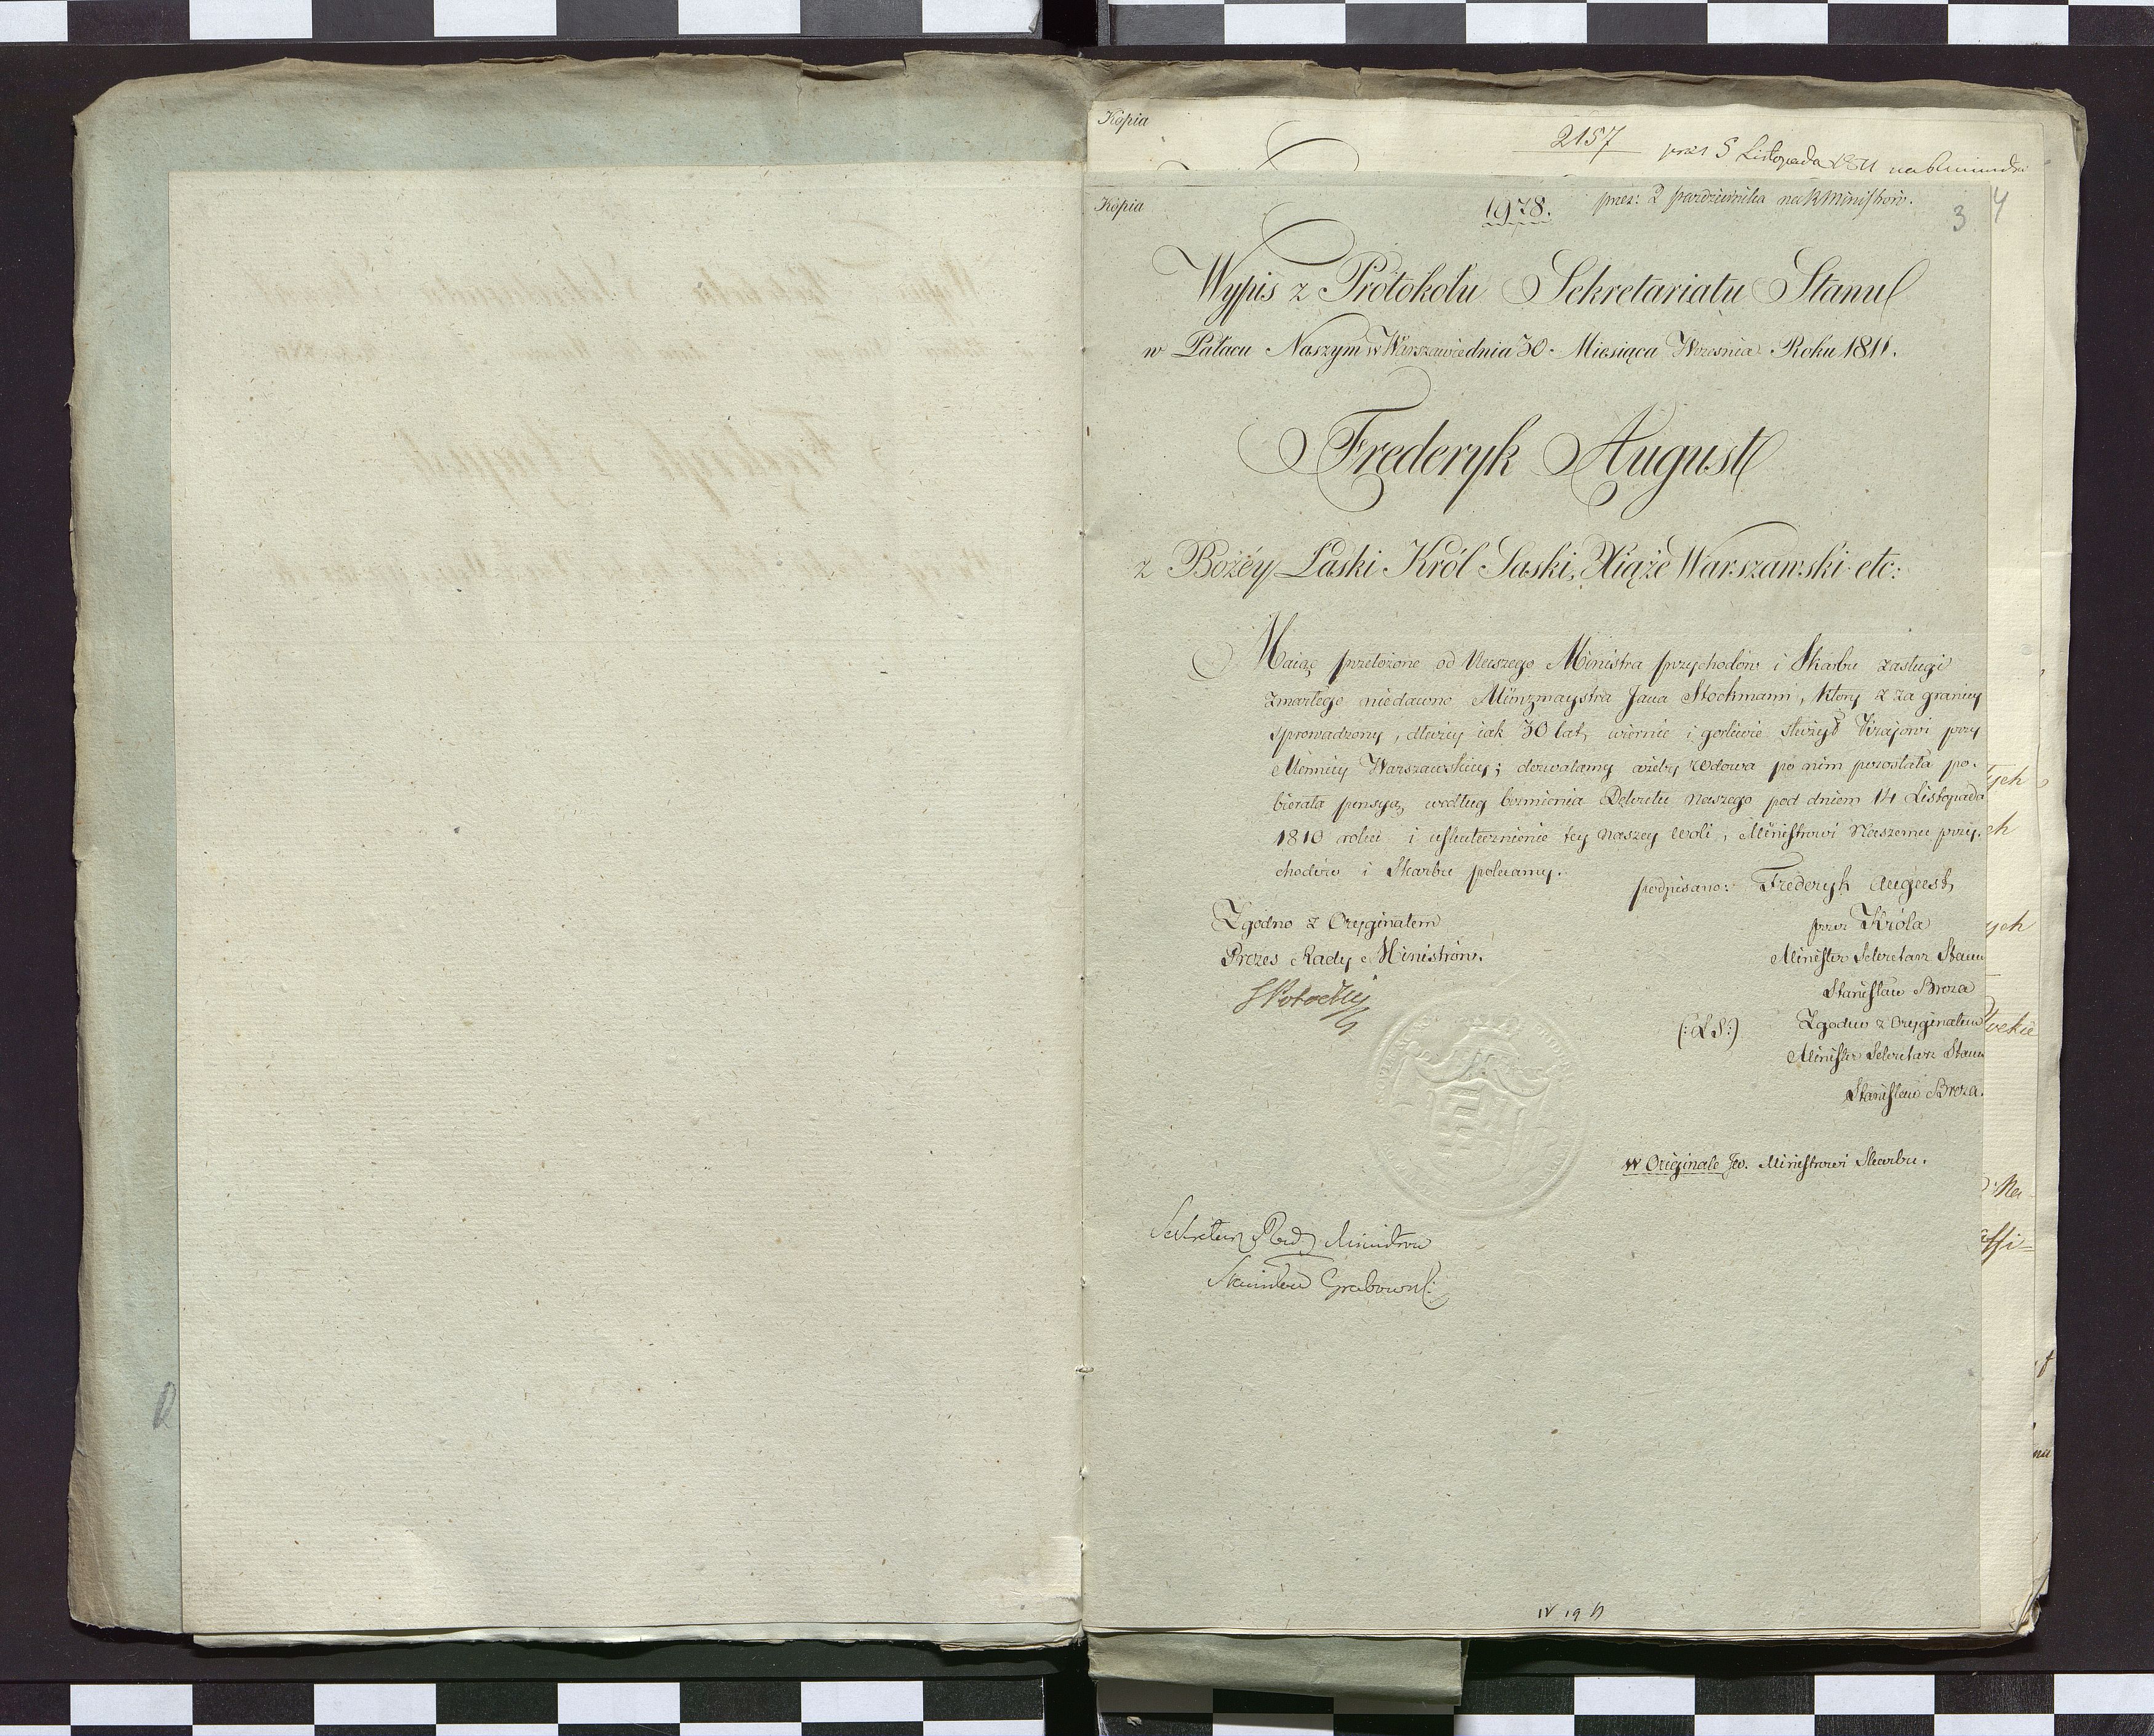 Kopia
2157
prez 5 Listopada 1811
Kopia
1978. prez: 2 pazdziernika na R Ministrów.
3 4
Wypis z Protokołu Sekretariatu Stanu
w Pałacu Naszym w Warszawie dnia 30. Miesiąca Wrzesnia Roku 1811.
Frederyk August
z Bożéy Łaski Król Saski, Xiąże Warszawski etc:
Maiąc przełożone od Naszego Ministra przychodów i Skarbu zasługi
zmarłego niedawno Münzmaystra Jana Stockmann, który z za granicy
sprowadzony, dłużey iak 30 lat, wiernie i gorliwie służył Krajowi przy
Mennicy Warszawskiey; dozwalamy ażeby wdowa po nim pozostała po-
bierała pensyą, według brzmienia Dekretu Naszego pod dniem 14 Listopada
1810 roku i uskutecznienie tey naszey woli, Ministrowi Naszemu przy-
chodów i Skarbu polecamy.
podpisano: Frederyk August
Zgodno z Oryginałem
przez Króla
Prezes Rady Ministrów.
Minister Sekretarz Stanu
SPotocki
Stanisław Breza
(:LS:) Zgodno z Oryginałem
Minister Sekretarz Stanu
Stanisław Breza.
W Originale Jw. Ministrowi Skarbu.
Sekretarz Rady Ministrów
Stanisław Grabowski
IV 19